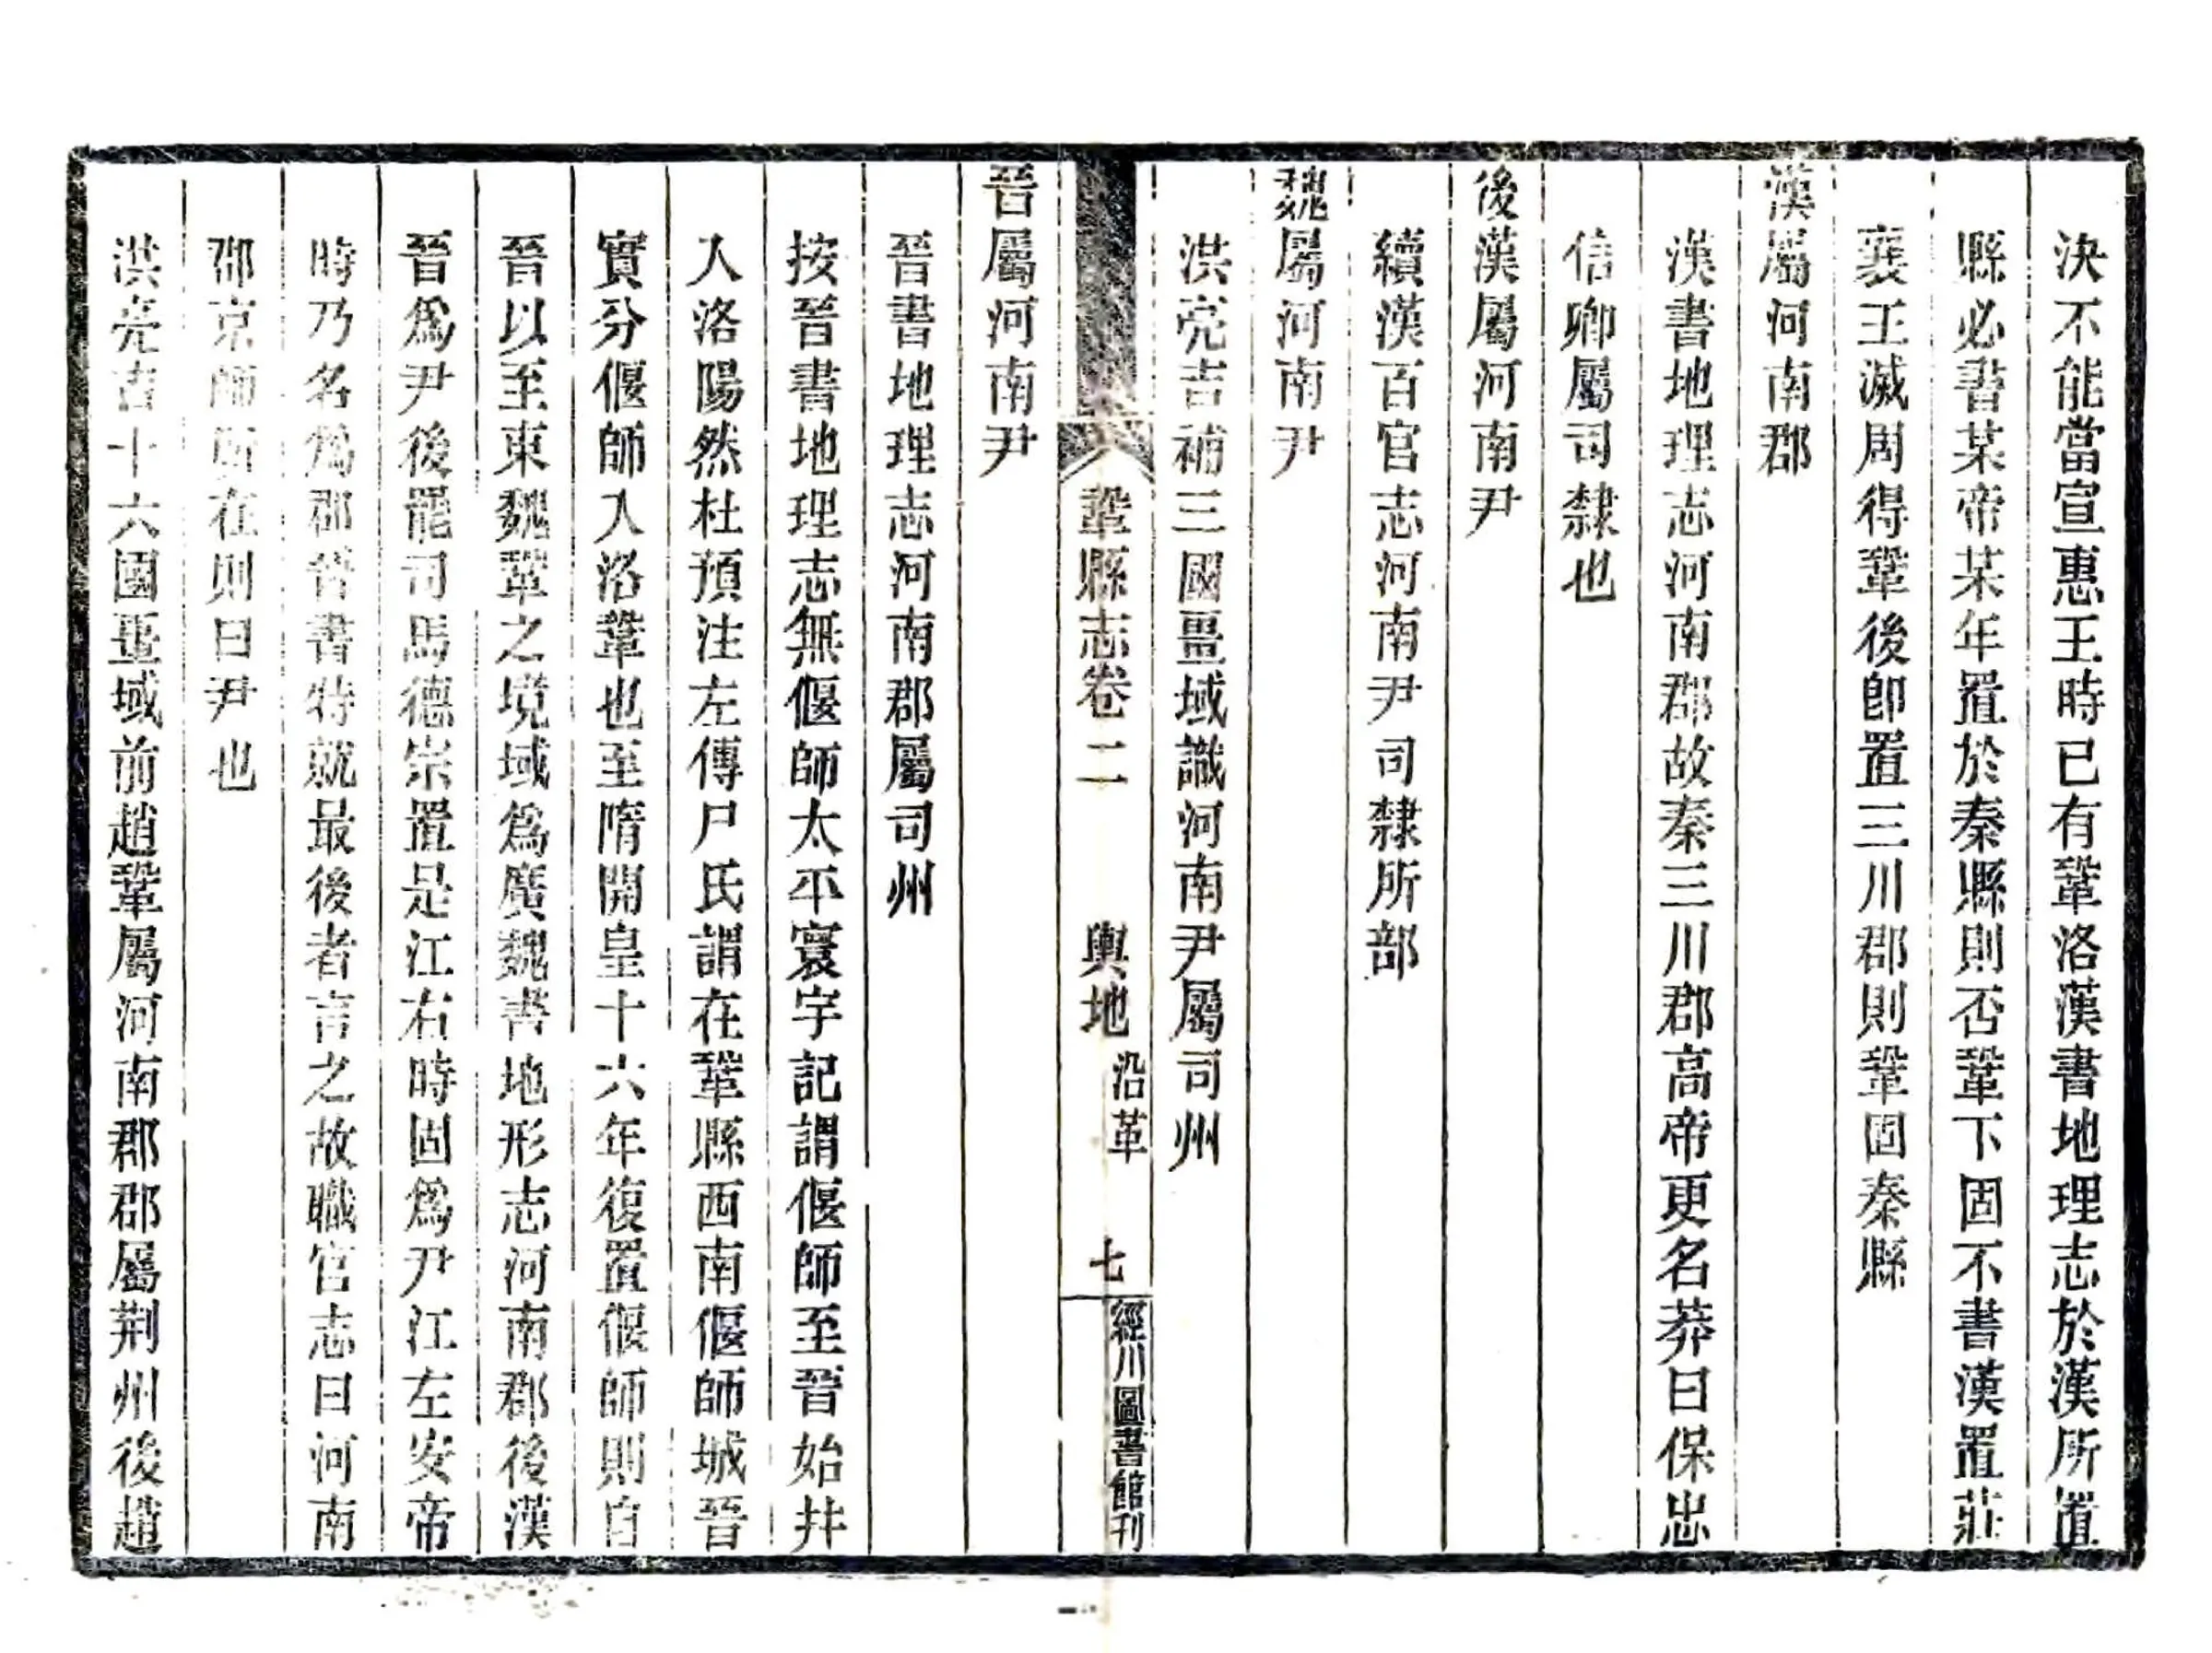 決不能當宣惠王時已有鞏洛漢書地理志於漢所置
縣必書某帝某年置於秦縣則否鞏下固不書漢置莊
襄王滅周得鞏後卽置三川郡則鞏固秦縣
漢屬河南郡
漢書地理志河南郡故秦三川郡高帝更名莽曰保忠
信卿屬司隸也
後漢屬河南尹
續漢百官志河南尹司隸所部
魏屬河南尹
洪亮吉補三國畺域識河南尹屬司州
鞏縣志卷二 輿地 沿革 七 經川圖書館刊
晉屬河南尹
晉書地理志河南郡屬司州
按晉書地理志無偃師太平寰宇記謂偃師至晉始幷
入洛陽然杜預注左傳尸氏謂在鞏縣西南偃師城晉
實分偃師入洛鞏也至隋開皇十六年復置偃師則自
晉以至東魏鞏之境域爲廣魏書地形志河南郡後漢
晉爲尹後罷司馬德宗置是江右時固爲尹江左安帝
時乃名爲郡晉書特就最後者言之故職官志曰河南
郡京師所在則曰尹也
洪亮吉十六國畺域前趙鞏屬河南郡郡屬荆州後趙